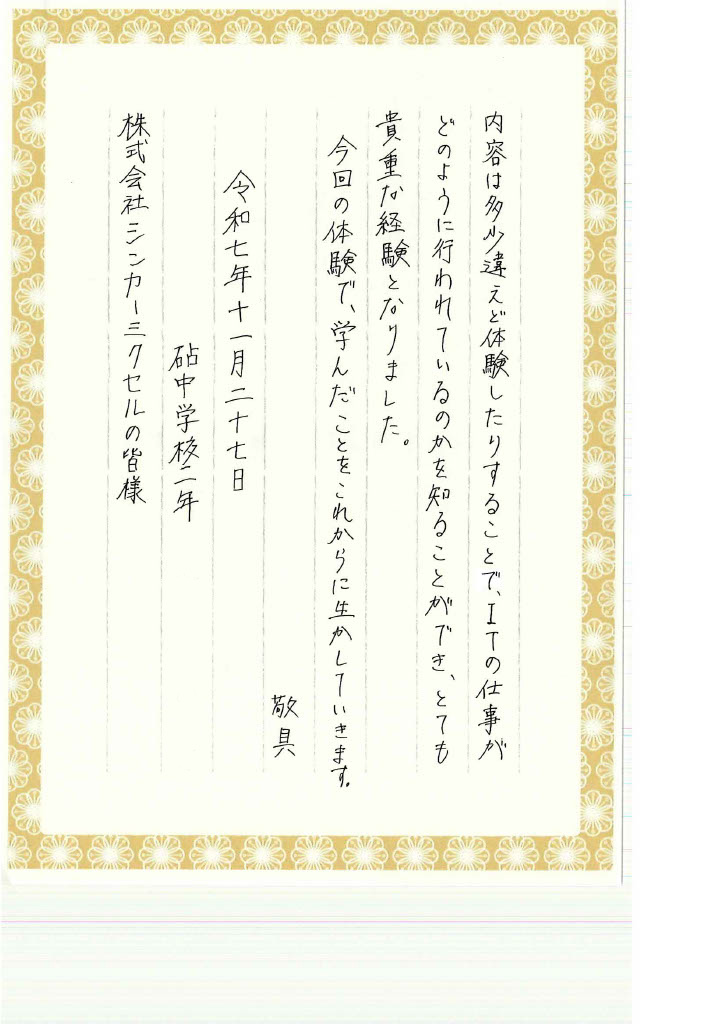 内容は多少違えど体験したりすることで、ITの仕事が
どのように行われているのかを知ることができ、とても
貴重な経験となりました。
今回の体験で、学んだことをこれからに生かしていきます。
敬具
令和七年十一月二十七日
砧中学校二年
株式会社シンカーミクセルの皆様